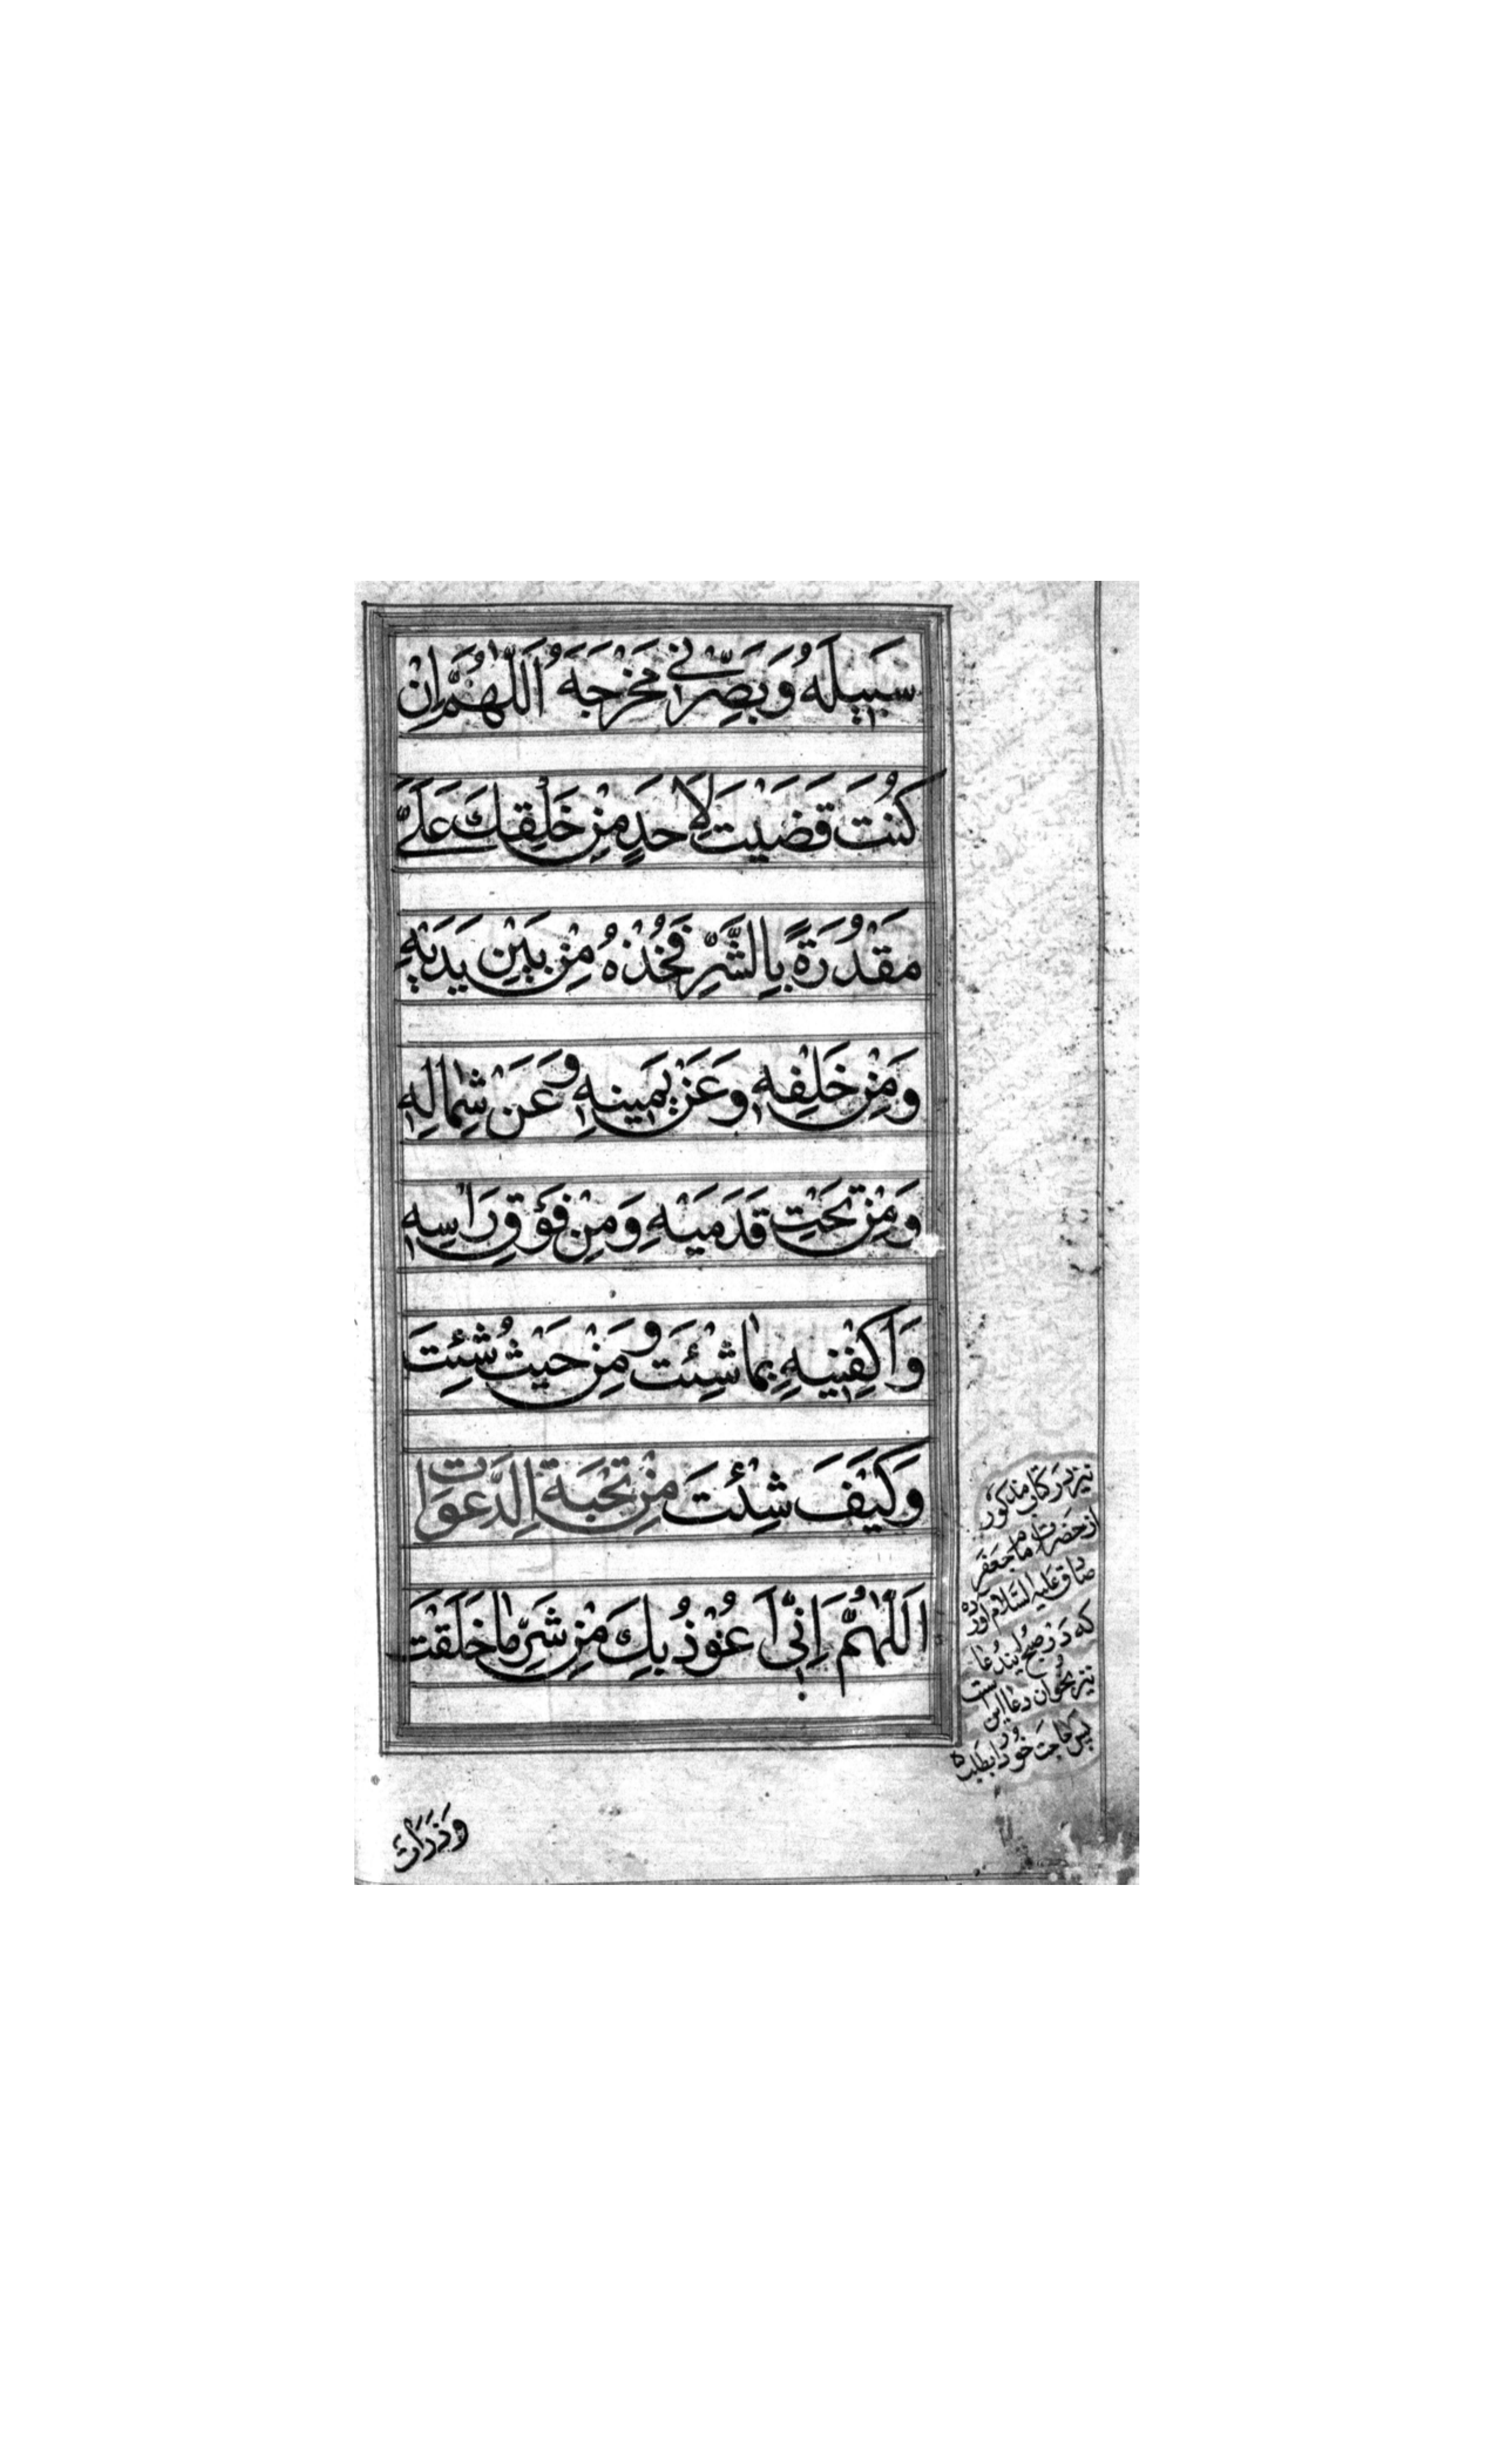 سَبِيلَهُ وَبَصِّرْنِي مَخْرَجَهُ اَللّٰهُمَّ اِنْ
كُنْتَ قَضَيْتَ لِاَحَدٍ مِنْ خَلْقِكَ عَلَيَّ
مَقْدُرَةً بِالشَّرِّ فَخُذْهُ مِنْ بَيْنِ يَدَيْهِ
وَمِنْ خَلْفِهِ وَعَنْ يَمِينِهِ وَعَنْ شِمَالِهِ
وَمِنْ تَحْتِ قَدَمَيْهِ وَمِنْ فَوْقِ رَاْسِهِ
وَاَكْفِنِيهِ بِمَا شِئْتَ وَمِنْ حَيْثُ شِئْتَ
وَكَيْفَ شِئْتَ مِنْ تَحْبَةِ الدَّعَوَاتِ
اَللّٰهُمَّ اِنِّي اَعُوْذُ بِكَ مِنْ شَرِّ مَا خَلَقْتَ
نیز در کتاب مذکور
از حضرت امام جعفر
صادق علیه السلام آورده
که در صبح این دعا
نیز بخوان دعا این است
پس حاجت خود را بطلبد
وَذَرَأْتَ